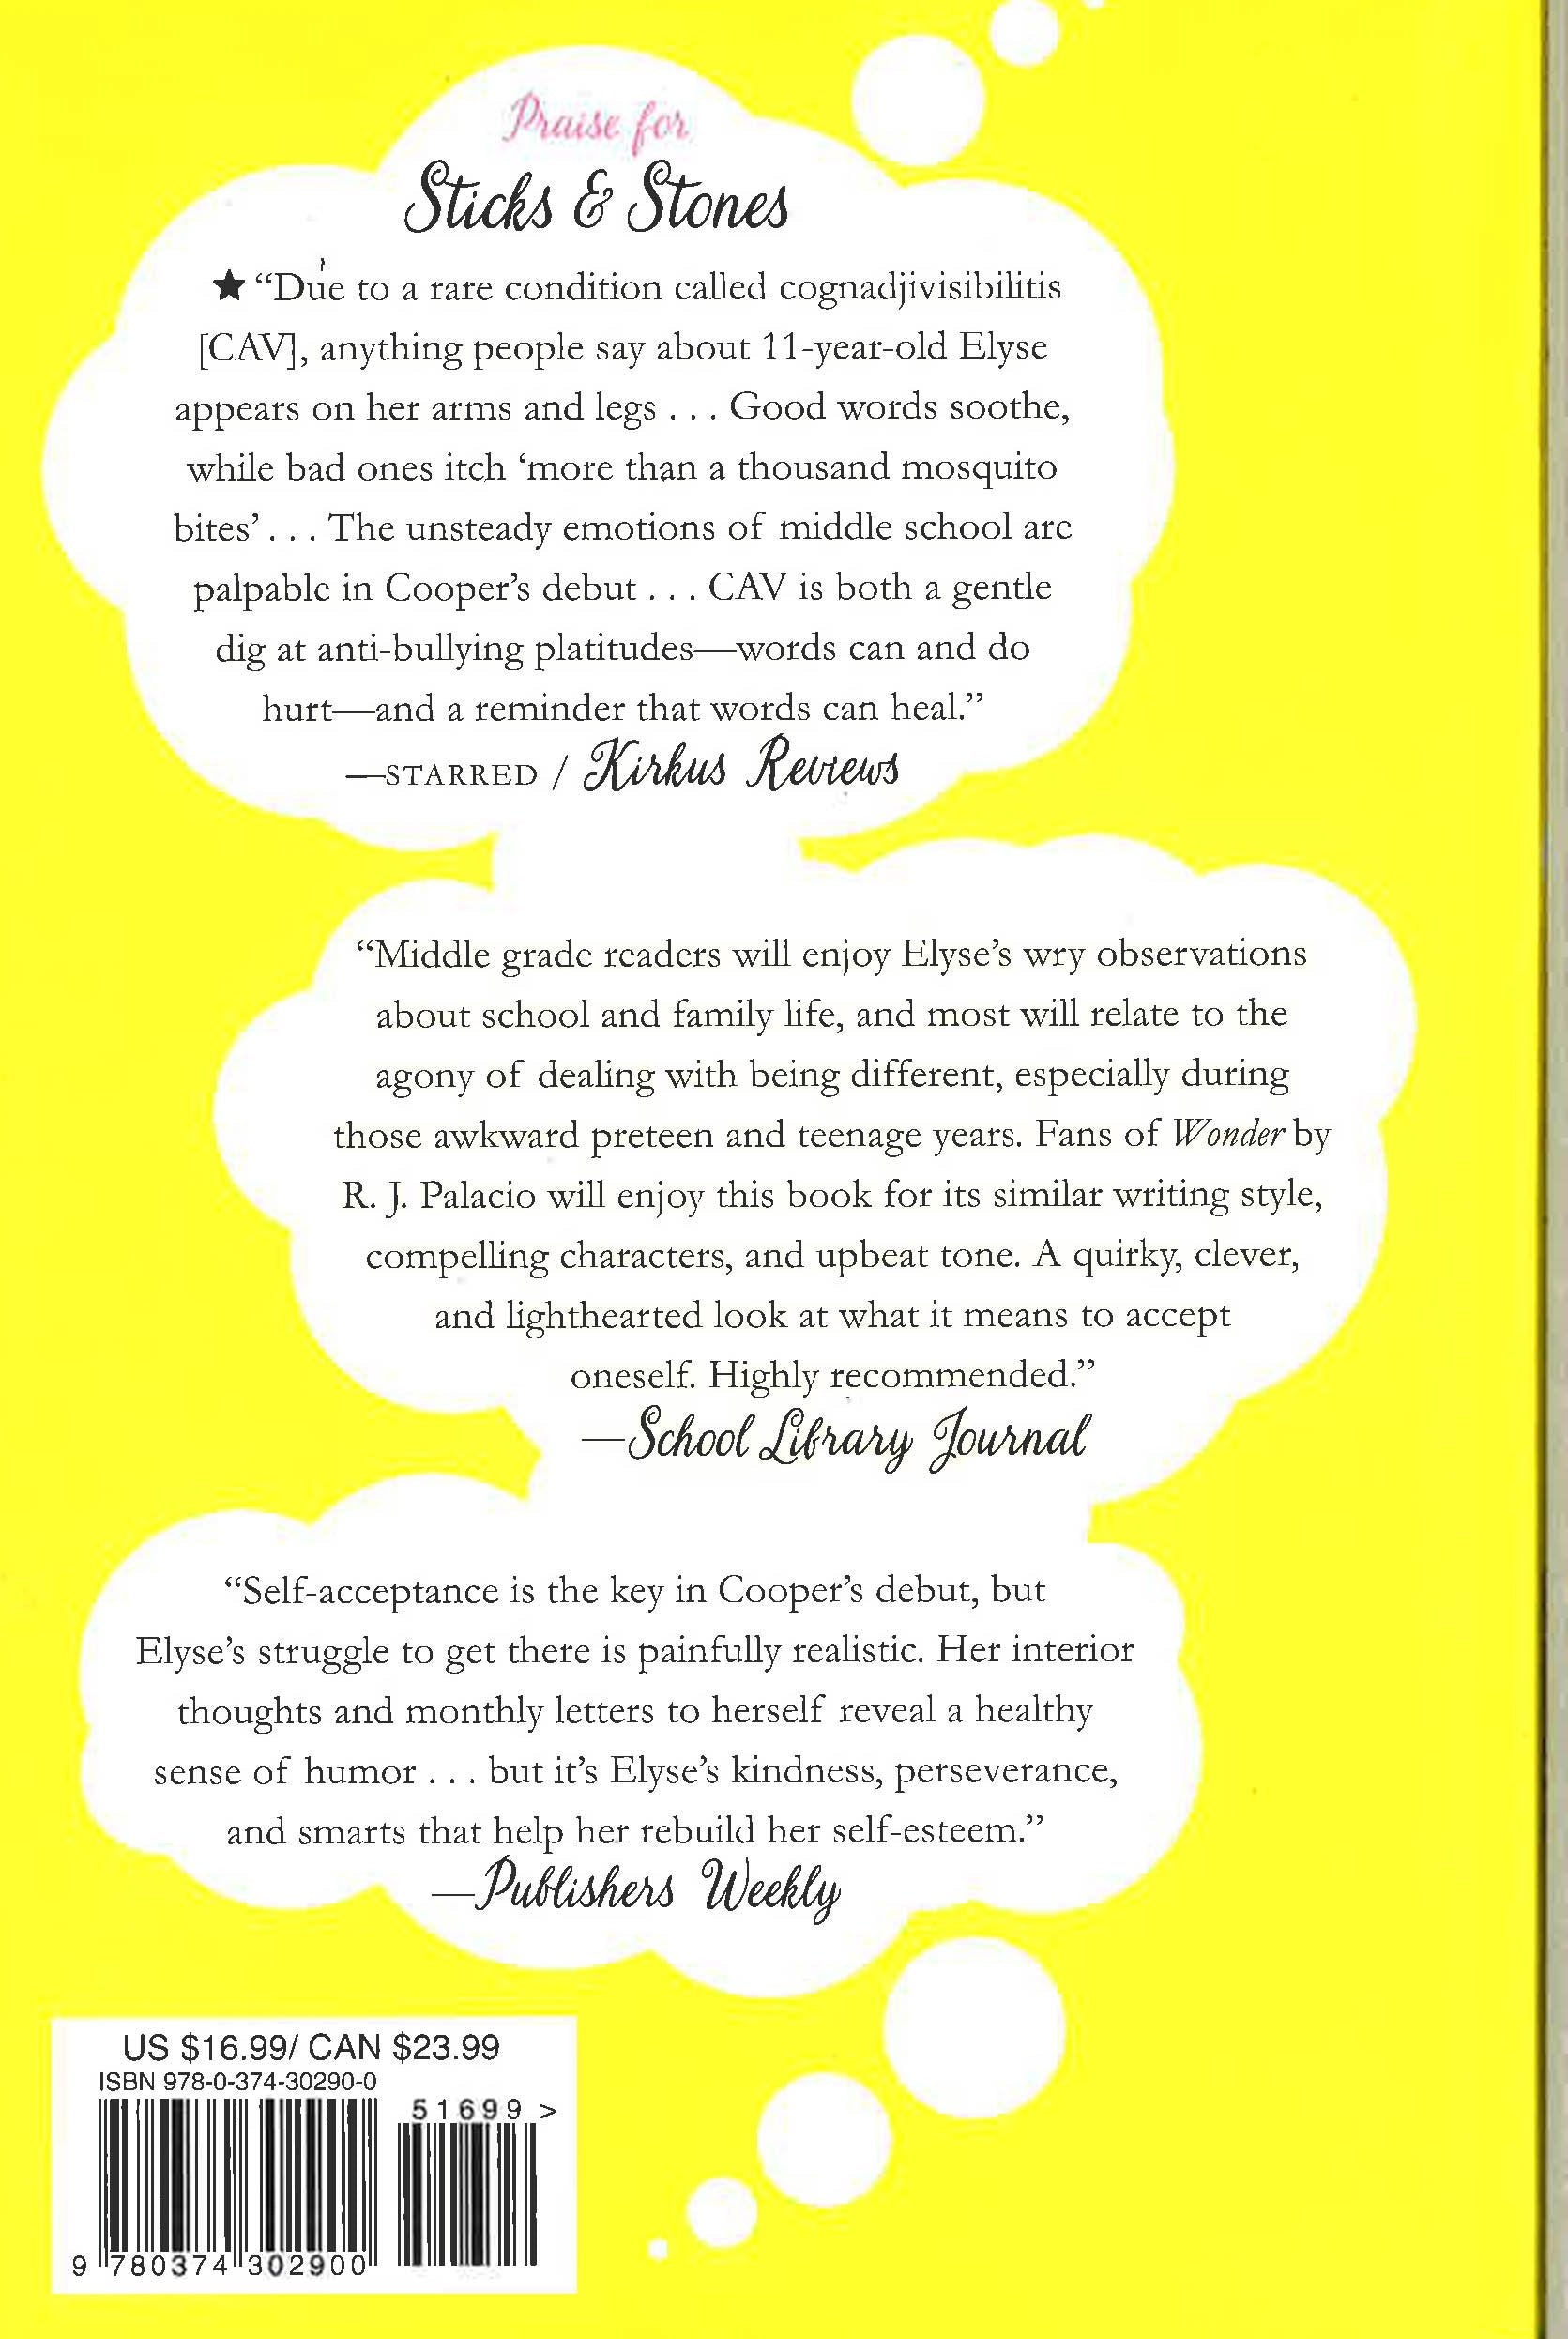 Praise for
Sticks & Stones
★ “Due to a rare condition called cognadjivisibilitis
[CAV], anything people say about 11-year-old Elyse
appears on her arms and legs . . . Good words soothe,
while bad ones itch ‘more than a thousand mosquito
bites’ . . . The unsteady emotions of middle school are
palpable in Cooper’s debut . . . CAV is both a gentle
dig at anti-bullying platitudes—words can and do
hurt—and a reminder that words can heal.”
—STARRED / Kirkus Reviews
“Middle grade readers will enjoy Elyse’s wry observations
about school and family life, and most will relate to the
agony of dealing with being different, especially during
those awkward preteen and teenage years. Fans of Wonder by
R. J. Palacio will enjoy this book for its similar writing style,
compelling characters, and upbeat tone. A quirky, clever,
and lighthearted look at what it means to accept
oneself. Highly recommended.”
—School Library Journal
“Self-acceptance is the key in Cooper’s debut, but
Elyse’s struggle to get there is painfully realistic. Her interior
thoughts and monthly letters to herself reveal a healthy
sense of humor . . . but it’s Elyse’s kindness, perseverance,
and smarts that help her rebuild her self-esteem.”
—Publishers Weekly
US $16.99/ CAN $23.99
ISBN 978-0-374-30290-0
51699 >
9 780374 302900